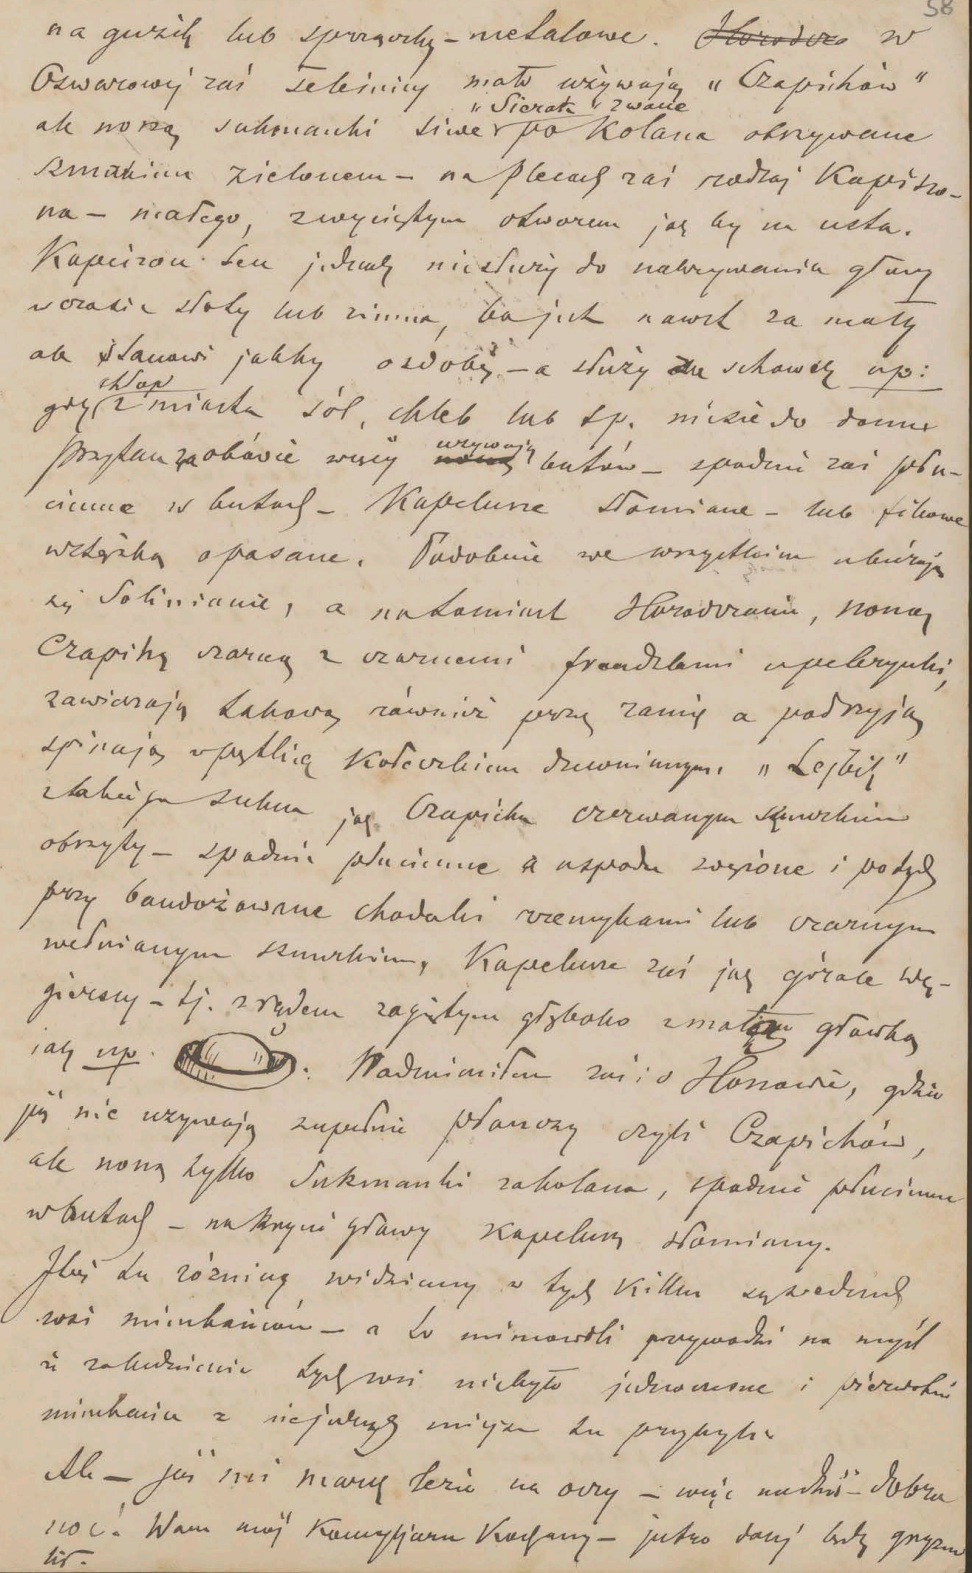 58
na guzik lub sprzączkę – metalowe. Horodcze w
Ozwarcowej zaś Teleśnicy mało używają „Czapichów"
„Sierak" zwane
ale noszą sukmanki siwe po kolana obszywane
sznurkiem zielonem – na plecach zaś rodzaj kapiszo-
na – małego, z wyciętym otworem jak by na usta.
Kapiszon ten jednak nie służy do nakrywania głowy
w czasie słoty lub zimna, bo jest nawet za mały
ale stanowi jakby ozdobę – a służy za schowek np:
chłop
gdy z miasta sól, chleb lub t.p. niesie do domu
używają
Przytem za obówie więcej noszą butów – spodnie zaś płó-
cienne w butach – Kapelusze słomiane – lub filcowe
wstążką opasane. Podobnie we wszystkiem ubierają
się Solinianie, a natomiast Horodczanie, noszą
Czapichę czarną z czarnemi frendzlami u pelerynki,
zawieszają takową również przez ramię a pod szyją
spinają pętlicą kołeczkiem drewnianym. „Lejbik"
z takiego sukna jak Czapicha czerwonym sznurkiem
obszyty – spodnie płócienne u spodu zwężone i potych
przy bandażowane chodaki rzemykami lub czarnym
wełnianym sznurkiem, Kapelusze zaś jak górale wę-
gierscy – tj. z rądem zagiętym głęboko z małą główką
jak np. . Nadmieniłem zaś i o Hoszowie, gdzie
już nie używają zupełnie płanczy czyli Czapichów,
ale noszą tylko Sukmanki za kolana, spodnie płócienne
w butach – nakrycie głowy kapelusz słomiany.
Jakąś tu różnicę widzimy w tych kilku sąsiednich
wsi mieszkańców – a to mimowoli przywodzi na myśl
że zaludnienie tych wsi nie było jednoczesne i pierwotni
mieszkańcy z niejednych miejsc tu przybyli.
Ale – już sen marzy lezie na oczy – więc na dziś – dobra
noc! Wam mój Kompijanie Kochany – jutro dalej będę gryzmo
lił.